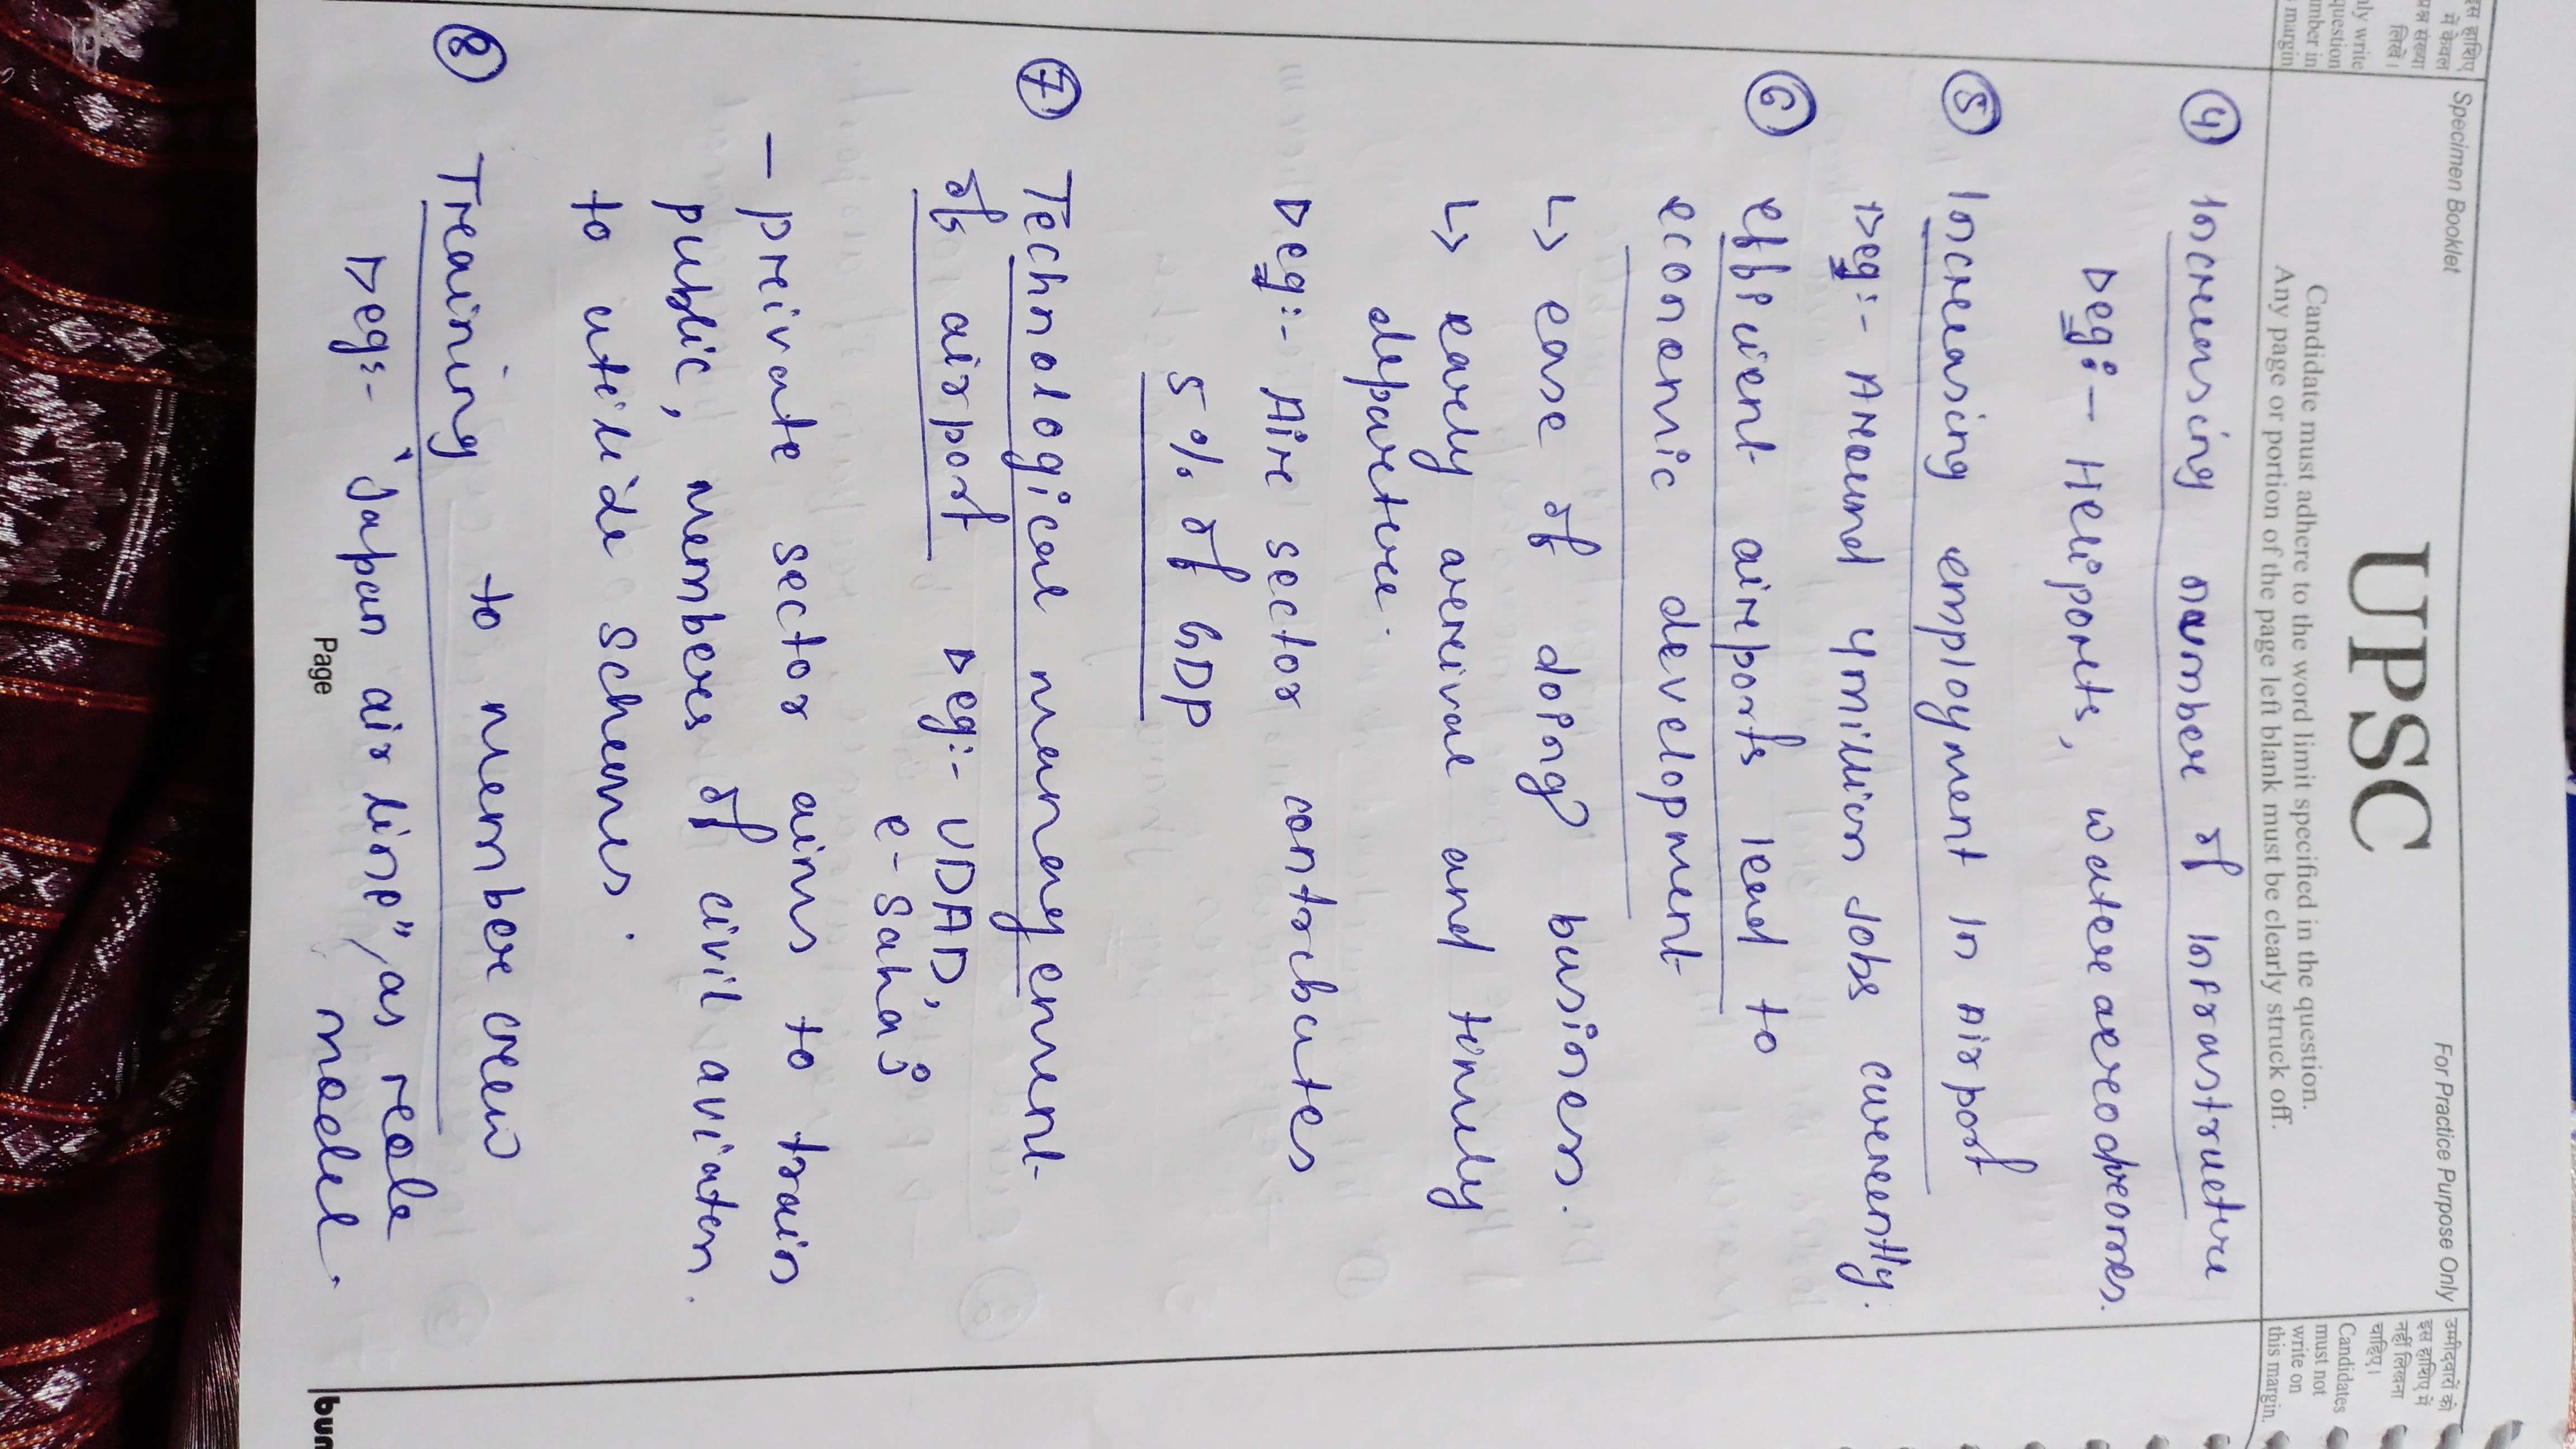 इस हाशिए
में केवल
प्रश्न संख्या
लिखें।
nly write
question
umber in
s margin
Specimen Booklet
For Practice Purpose Only
UPSC
Candidate must adhere to the word limit specified in the question.
Any page or portion of the page left blank must be clearly struck off.
उम्मीदवारों को
इस हाशिए में
नहीं लिखना
चाहिए।
Candidates
must not
write on
this margin.
④ Increasing number of infrastructure
eg:- Heliports, water aerodromes.
⑤ Increasing employment in Airport
eg:- Around 4 million Jobs currently.
⑥ efficient airports lead to
economic development
↳ ease of doping business.
↳ early arrival and timely
departure.
eg:- Air sector contributes
5% of GDP
⑦ Technological management
of airport eg:- UDAD,
e-Sahaj
- private sector aims to train
public, members of civil aviation
to utilide schemes.
⑧ Training to member crew
eg:- "Japan air line", as role
model.
Page